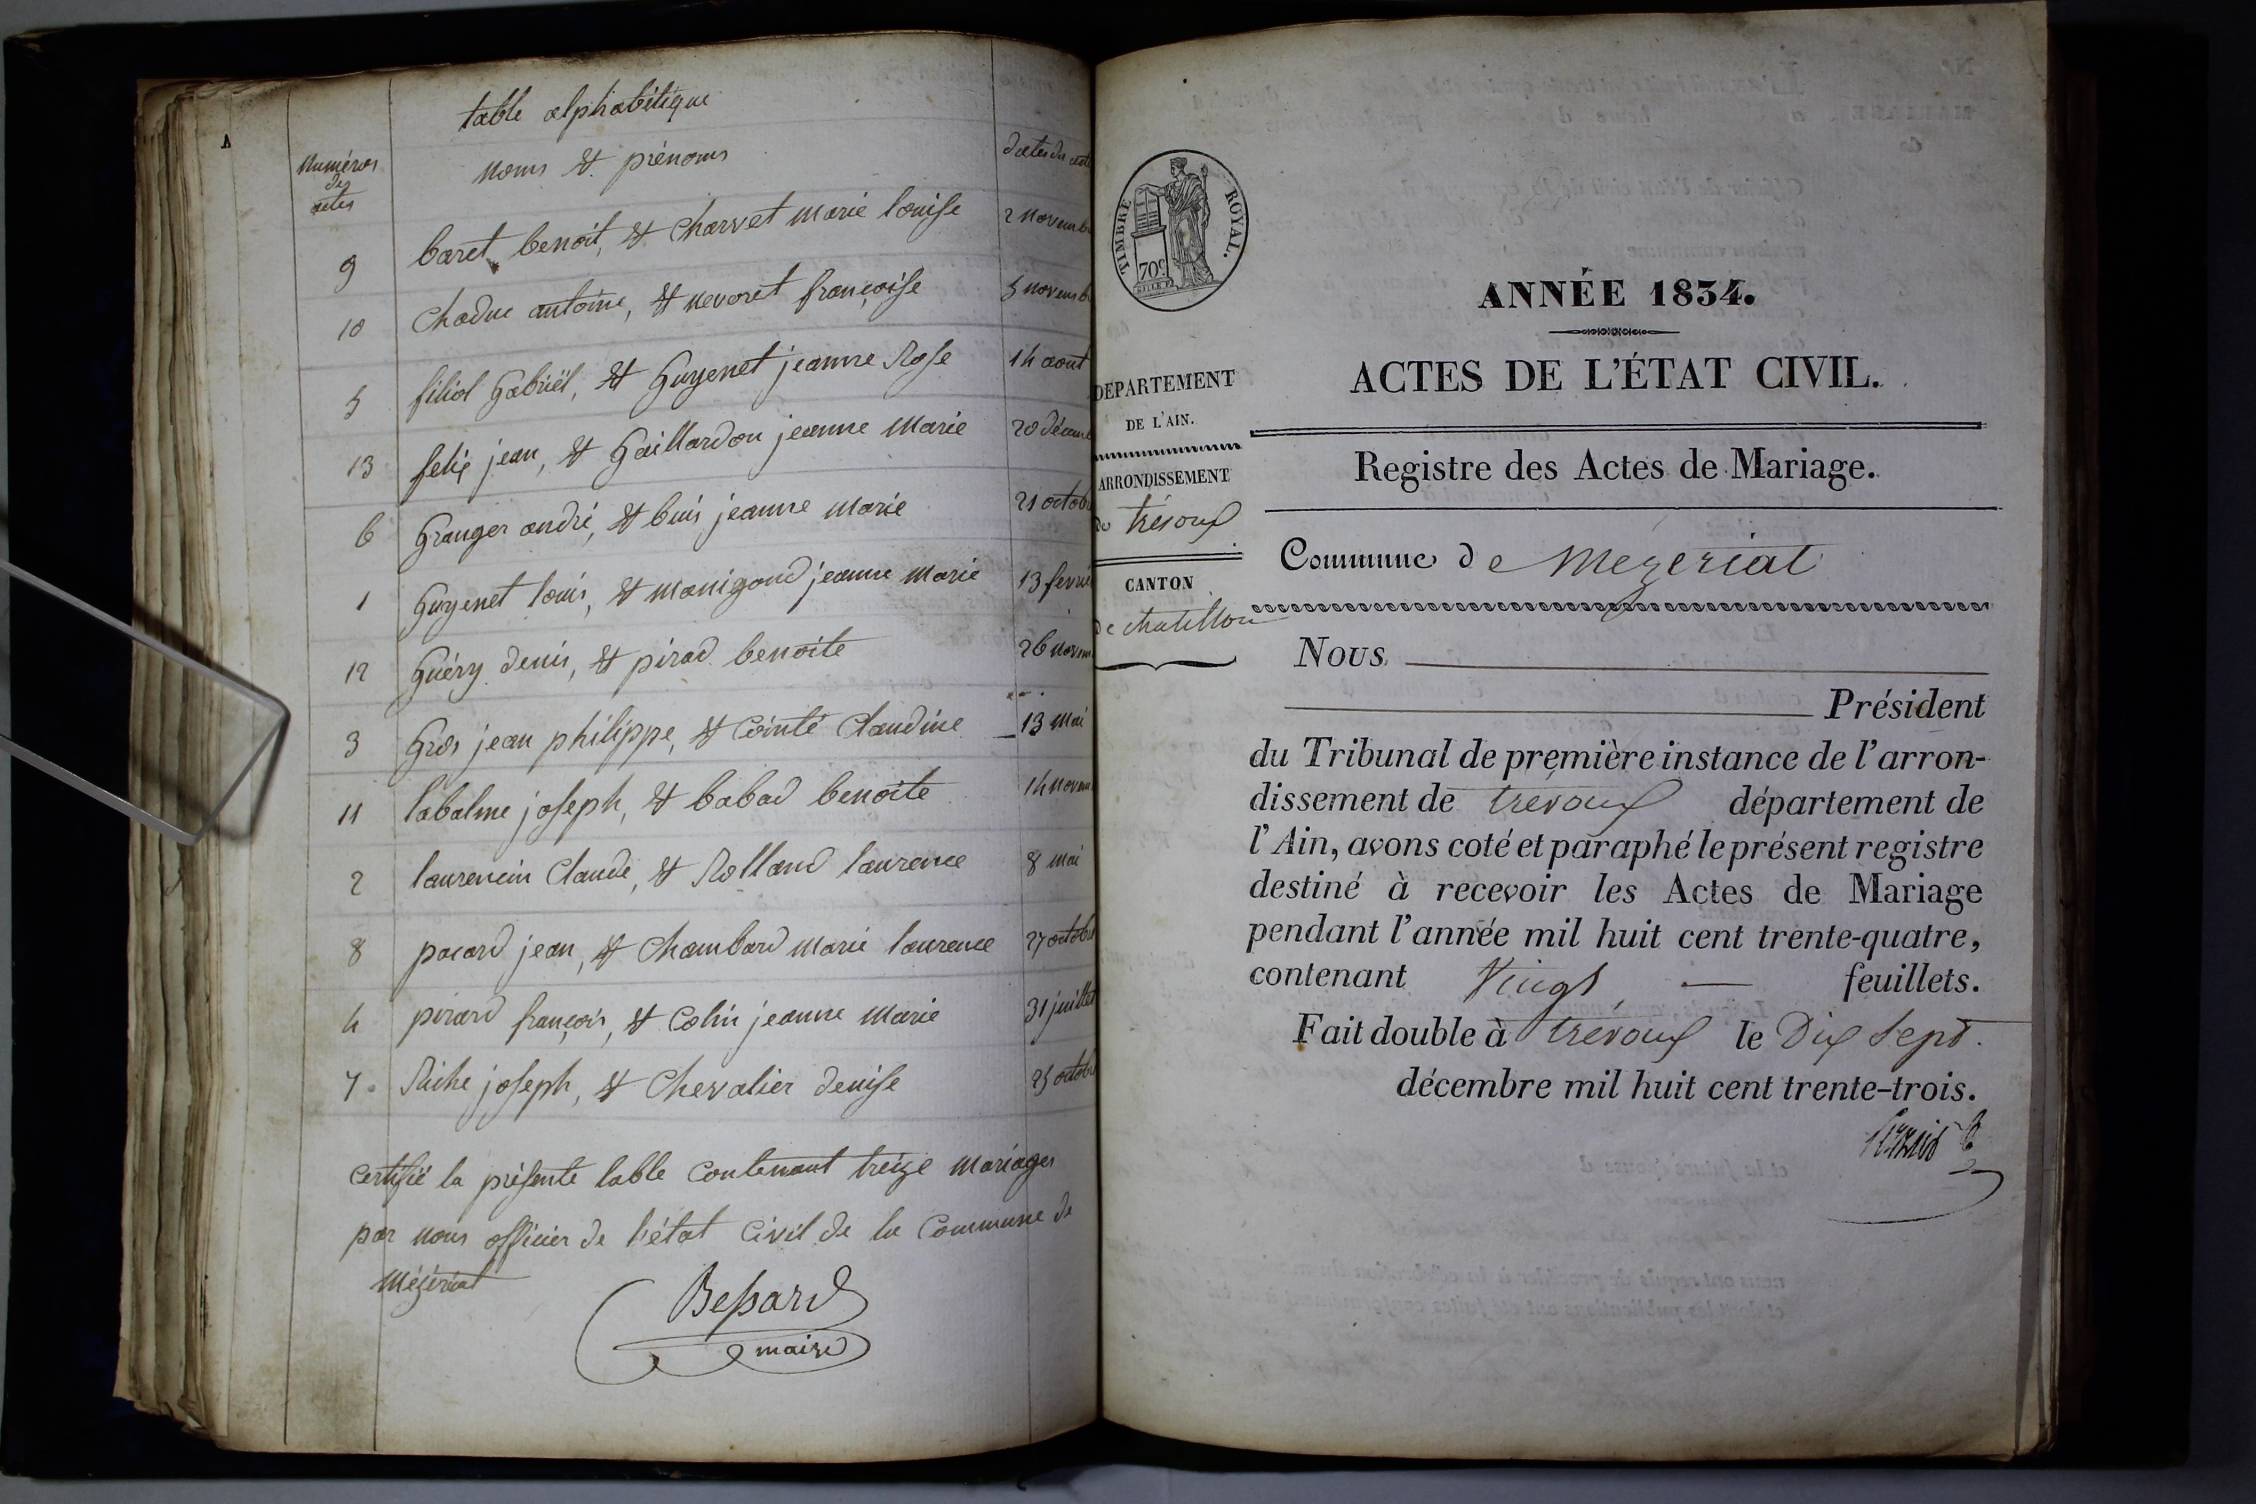 table alphabétique
Numéros des actes
noms & prénoms
dates des actes
9 baret benoit, & Charvet marie louise 2 novemb
10 Chaduc antoine, & nevoret françoise 5 novemb
5 filiol Gabriël, & Guyenet jeanne Rose 14 aout
13 felix jean, & Gaillardon jeanne Marie 20 décem
6 Granger andré, & buis jeanne marie 21 octob
1 Guyenet louis, & manigand jeanne marie 13 fevri
12 Guéry denis, & pirad benoite 26 novem
3 Gros jean philippe, & Cointé Claudine 13 mai
11 labalme joseph, & babad benoite 14 novem
2 laurencin Claude, & Rolland laurence 8 mai
8 pacard jean, & Chambard marie laurence 27 octob
4 pirard françois, & Colin jeanne Marie 31 juillet
7 Riche joseph, & Chevalier denise 25 octob
certifié la présente table Contenant treize mariages
par nous officier de l'état Civil de la Commune de
Mézériat
Bessard
maire
TIMBRE ROYAL.
70c
ANNÉE 1834.
ACTES DE L'ÉTAT CIVIL.
DÉPARTEMENT
DE L'AIN.
Registre des Actes de Mariage.
ARRONDISSEMENT
de trévoux
Commune de Mezeriat
CANTON
de chatillon
Nous
Président
du Tribunal de première instance de l'arron-
dissement de trévoux département de
l'Ain, avons coté et paraphé le présent registre
destiné à recevoir les Actes de Mariage
pendant l'année mil huit cent trente-quatre,
contenant Vingt feuillets.
Fait double à trévoux le Dix Sept
décembre mil huit cent trente-trois.